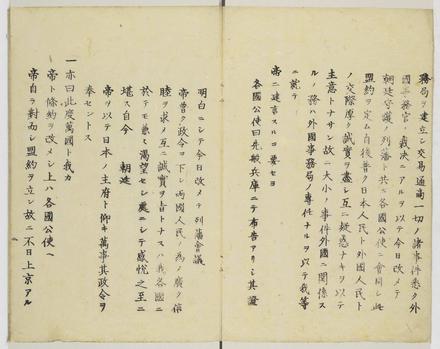 務局ヲ建立シ交易通商一切ノ諸事件悉ク外
國事務官ノ裁决ニアルヲ以テ今日改メテ
朝廷守護ノ列藩ト共ニ各國公使ニ會同シ此
盟約ヲ定ム自後普ク日本人民ト外國人民ト
ノ交際厚ク誠實ヲ盡シ互ニ疑惑ナキヲ以テ
主意トナサン故ニ大小ノ事件外國ニ関係ス
ルノ務ハ外國事務局ノ專任ナルヲ以テ我等
ニ就テ
帝ニ建言スルコヲ要セヨ
各國公使曰先般兵庫ニテ布告アリシ其證
明白ニシテ今日改メテ列藩會議
帝普ク政令ヲ下シ両國人民ノ為ノ廣ク信
睦ヲ求メ互ニ誠實ヲ旨トナスハ我各國ニ
於テモ兼テ渇望セシ處ニシテ感忱之至ニ
堪ス自今 朝廷
帝ヲ以テ日本ノ主府ト仰キ萬事其政令ヲ
奉セントス
一亦曰此度萬國ト我カ
帝ト條約ヲ改メシ上ハ各國公使ヘ
帝自ラ對面シ盟約ヲ立シ故ニ不日上京アル